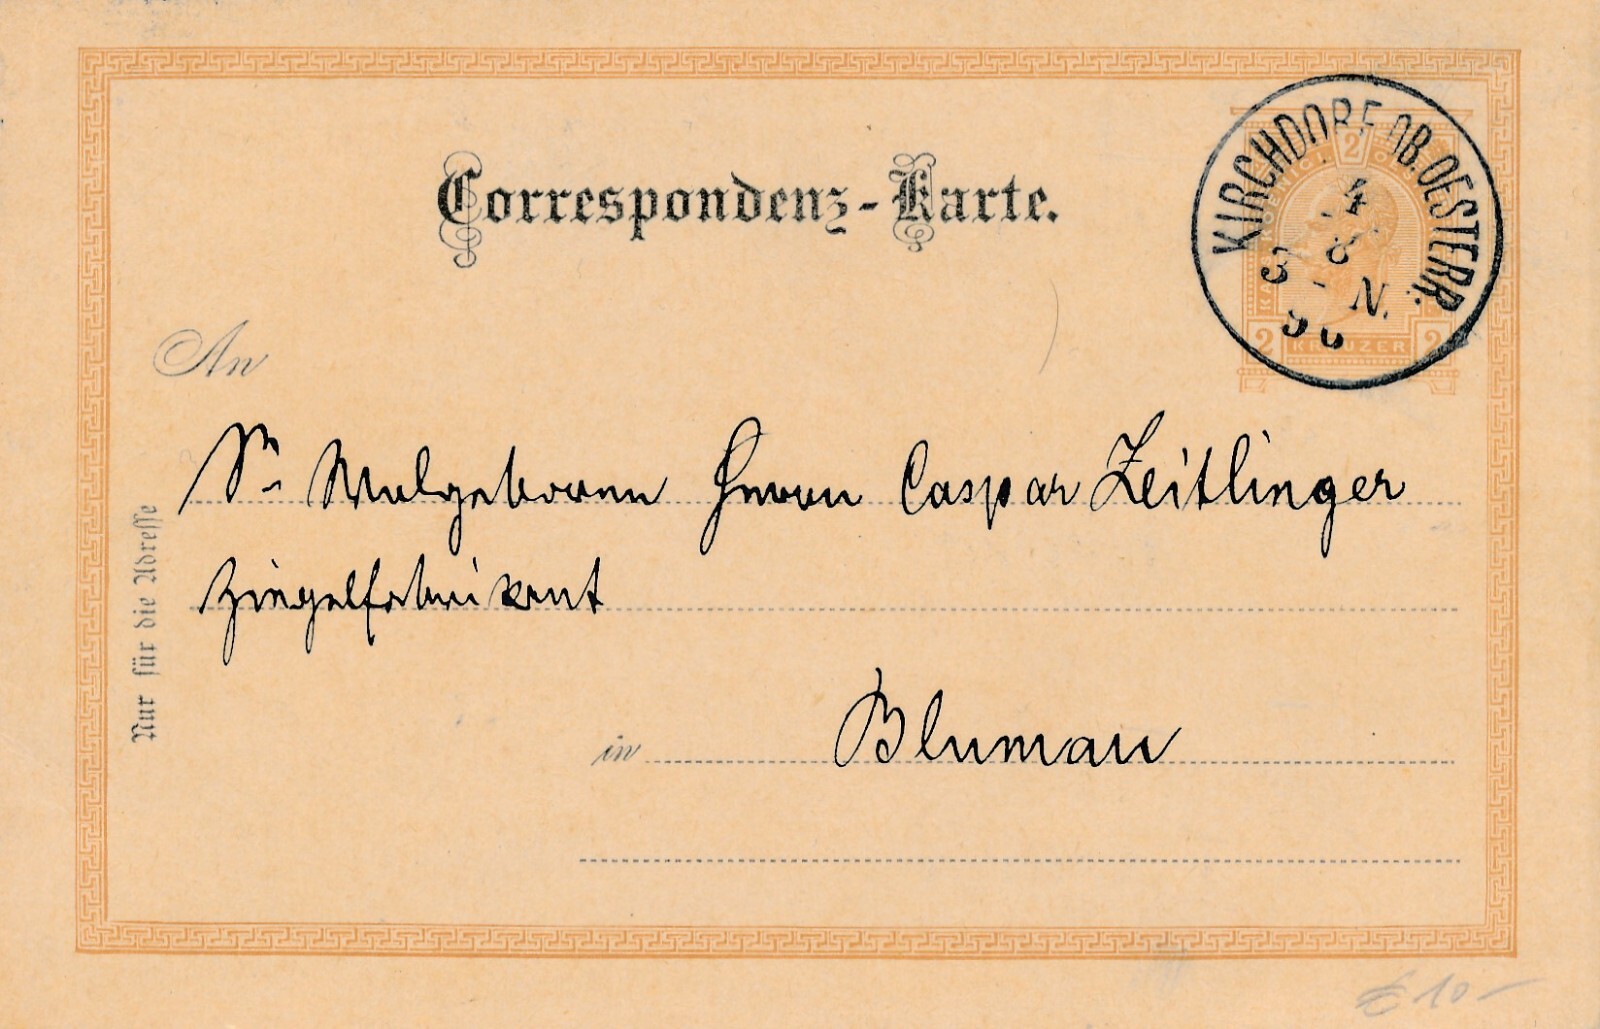 Correspondenz-Karte.
KIRCHDORF OB. OESTERR.
4
8
3 - N.
96
2
2 KREUZER 2
An
Sr Wolgeboren Herrn Caspar Zeitlinger
Ziegelfabrikant
in Blumau
Nur für die Adresse
€ 10-